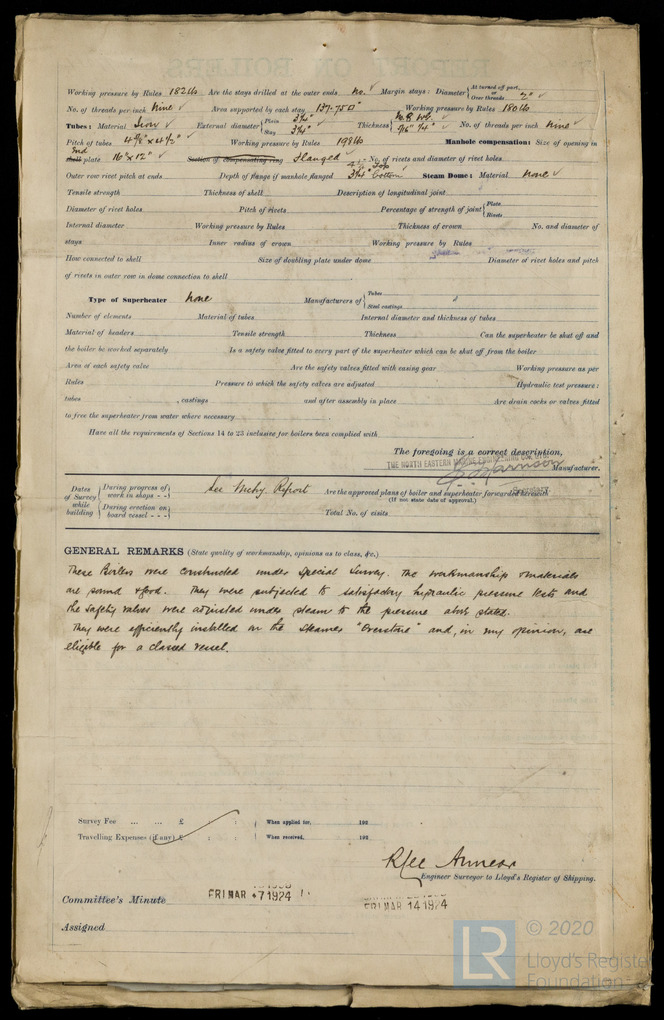 Working pressure by Rules 182 lb Are the stays drilled at the outer ends no. Margin stays: Diameter { At turned off part, or Over threads 2"
No. of threads per inch Nine Area supported by each stay 137.75 □" Working pressure by Rules 180 lb
Tubes: Material Iron External diameter { Plain 3¼" Stay 3¼" Thickness { No. of threads per inch nine
Pitch of tubes Working pressure by Rules Manhole compensation: Size of opening in
shell plate 16" x 12" Section of compensating ring Flanged No. of rivets and diameter of rivet holes
Outer row rivet pitch at ends Depth of flange if manhole flanged Steam Dome: Material None
Tensile strength Thickness of shell Description of longitudinal joint
Diameter of rivet holes Pitch of rivets Percentage of strength of joint { Plate Rivets
Internal diameter Working pressure by Rules Thickness of crown No. and diameter of
stays Inner radius of crown Working pressure by Rules
How connected to shell Size of doubling plate under dome Diameter of rivet holes and pitch
of rivets in outer row in dome connection to shell
Type of Superheater None Manufacturers of { Tubes Steel castings
Number of elements Material of tubes Internal diameter and thickness of tubes
Material of headers Tensile strength Thickness Can the superheater be shut off and
the boiler be worked separately Is a safety valve fitted to every part of the superheater which can be shut off from the boiler
Area of each safety valve Are the safety valves fitted with easing gear Working pressure as per
Rules Pressure to which the safety valves are adjusted Hydraulic test pressure:
tubes , castings and after assembly in place Are drain cocks or valves fitted
to free the superheater from water where necessary
Have all the requirements of Sections 14 to 23 inclusive for boilers been complied with
The foregoing is a correct description,
THE NORTH EASTERN MARINE ENGINEERING CO. LTD.
Harrison Manufacturer.
Secretary
Dates of Survey while building { During progress of work in shops - - During erection on board vessel - - - See Mchy Report Are the approved plans of boiler and superheater forwarded herewith
(If not state date of approval.)
Total No. of visits
GENERAL REMARKS (State quality of workmanship, opinions as to class, &c.)
These Boilers were constructed under Special Survey. The workmanship & materials
are sound & good. They were subjected to satisfactory hydraulic pressure tests and
the safety valves were adjusted under steam to the pressure above stated.
They were efficiently installed on the Steamer "Overstone" and, in my opinion, are
eligible for a classed vessel.
Survey Fee ... ... £ : : When applied for, 192
Travelling Expenses (if any) £ : : When received, 192
R Lee Annear
Engineer Surveyor to Lloyd's Register of Shipping.
Committee's Minute FRI MAR 7 1924 FRI MAR 14 1924
Assigned
LR © 2020
Lloyd's Register
Foundation